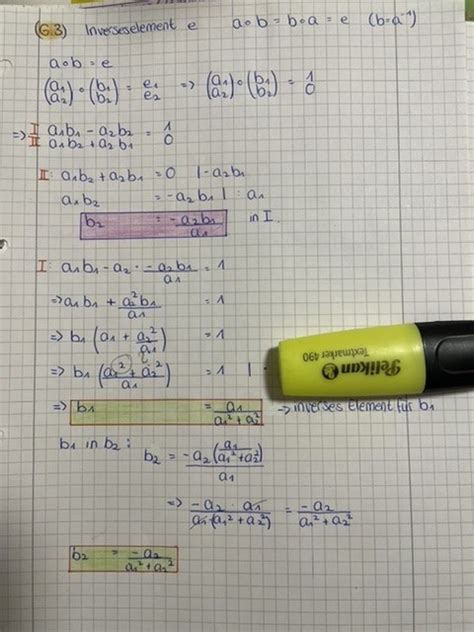 (G.3) Inverseselement e a∘b = b∘a = e (b=a⁻¹)
a∘b = e
(a₁ a₂) ∘ (b₁ b₂) = e₁ e₂ => (a₁ a₂) ∘ (b₁ b₂) = 1 0
=> I a₁b₁ - a₂b₂ = 1
II a₁b₂ + a₂b₁ = 0
II: a₁b₂ + a₂b₁ = 0 | -a₂b₁
a₁b₂ = -a₂b₁ | : a₁
b₂ = -a₂b₁/a₁ in I.
I: a₁b₁ - a₂ · -a₂b₁/a₁ = 1
=> a₁b₁ + a₂²b₁/a₁ = 1
=> b₁ (a₁ + a₂²/a₁) = 1
=> b₁ (a₁² + a₂²/a₁) = 1 |
Pelikan
Textmarker 490
=> b₁ = a₁/a₁² + a₂² -> inverses Element für b₁
b₁ in b₂:
b₂ = -a₂(a₁/a₁²+a₂²)/a₁
=> -a₂ a₁/a₁(a₁² + a₂²) = -a₂/a₁² + a₂²
b₂ = -a₂/a₁² + a₂²